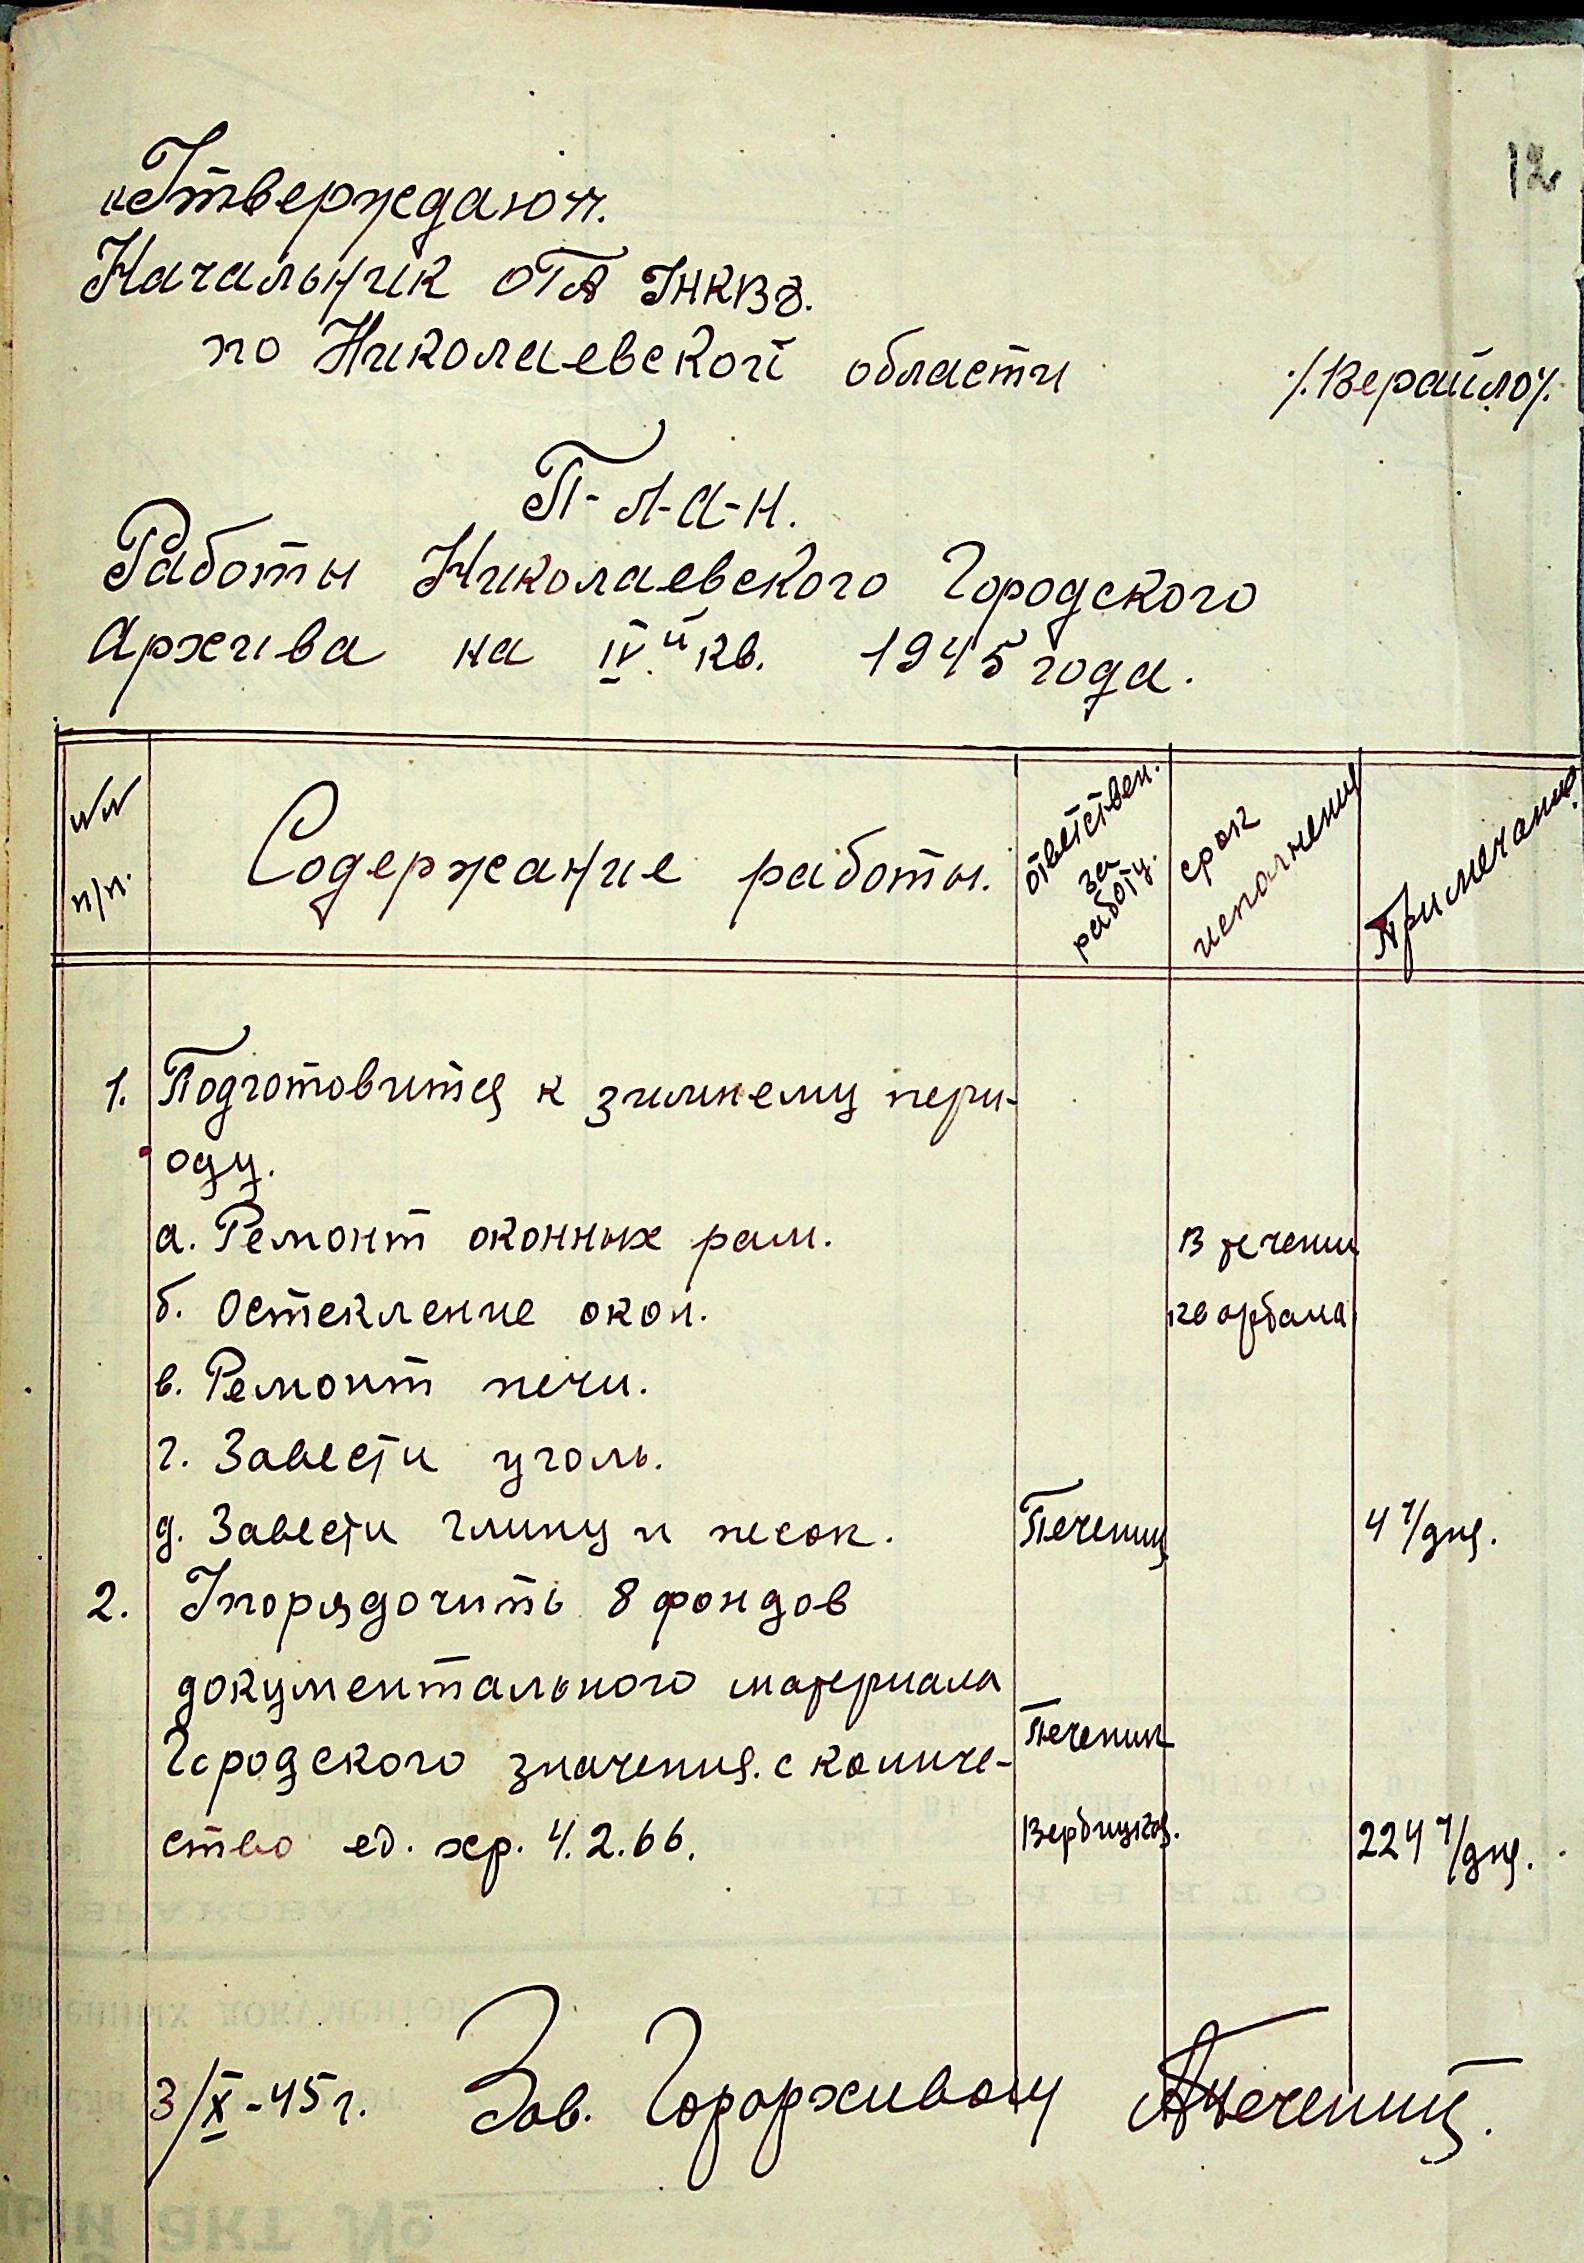 12
„Утверждаю".
Начальник ОГА УНКВД.
по Николаевской области /.Верайло/.
П-Л-А-Н.
Работы Николаевского Городского
Архива на IV.й кв. 1945 года.
№№ п/п. Содержание работы. ответствен. за работу. срок исполнения Примечание
1. Подготовится к зимнему пери-
оду.
а. Ремонт оконных рам. В течении
б. Остекление окон. квартала
в. Ремонт печи.
г. Завести уголь.
д. Завести глину и песок. Печениц 4 ч/дня.
2. Упорядочить 8 фондов
документального материала
Городского значения. с количе- Печениц
ство ед. хр. 4.266. Вербицкая. 224 ч/дня.
3/X-45 г. Зав. Горархивом Печениц.